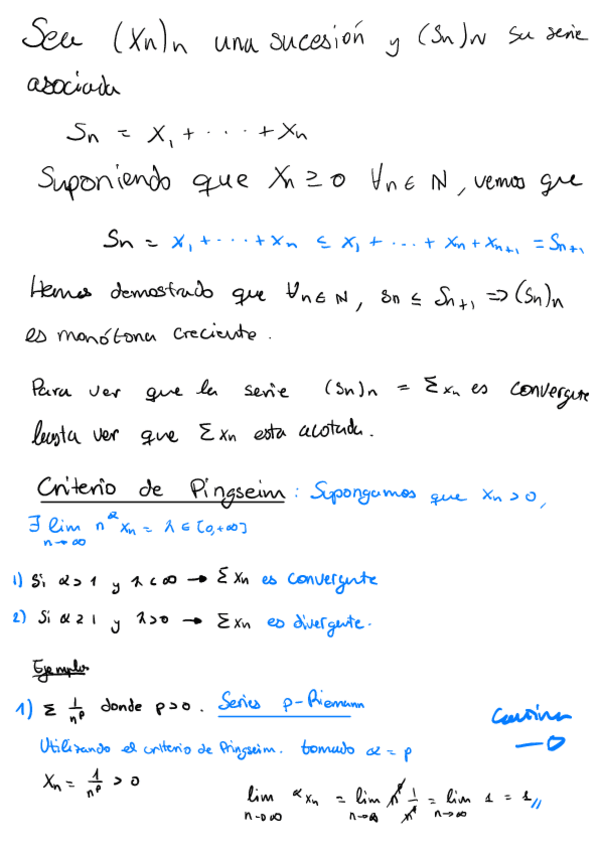 Sea (Xn)n una sucesión y (Sn)n su serie
asociada
Sn = X₁ + ··· + Xn
Suponiendo que Xn ≥ 0 ∀n ∈ N, vemos que
Sn = x₁ + ··· + xn ≤ x₁ + ... + xn + xn+1 = Sn+1
Hemos demostrado que ∀n ∈ N, sn ≤ Sn+1 => (Sn)n
es monótona creciente.
Para ver que la serie (Sn)n = Σxn es convergente
basta ver que Σxn esta acotada.
Criterio de Pingseim: Supongamos que xn > 0,
∃ lim n^α xn = λ ∈ [0,+∞]
n→∞
1) Si α > 1 y λ < ∞ → Σxn es convergente
2) Si α ≥ 1 y λ > 0 → Σxn es divergente.
Ejemplos
1) Σ 1/n^p donde p > 0. Series p-Riemann
Utilizando el criterio de Pingseim. tomado α = p
Xn = 1/n^p > 0
lim αxn = lim n^α 1/n^α = lim 1 = 1,,
n→∞ n→∞ n→∞